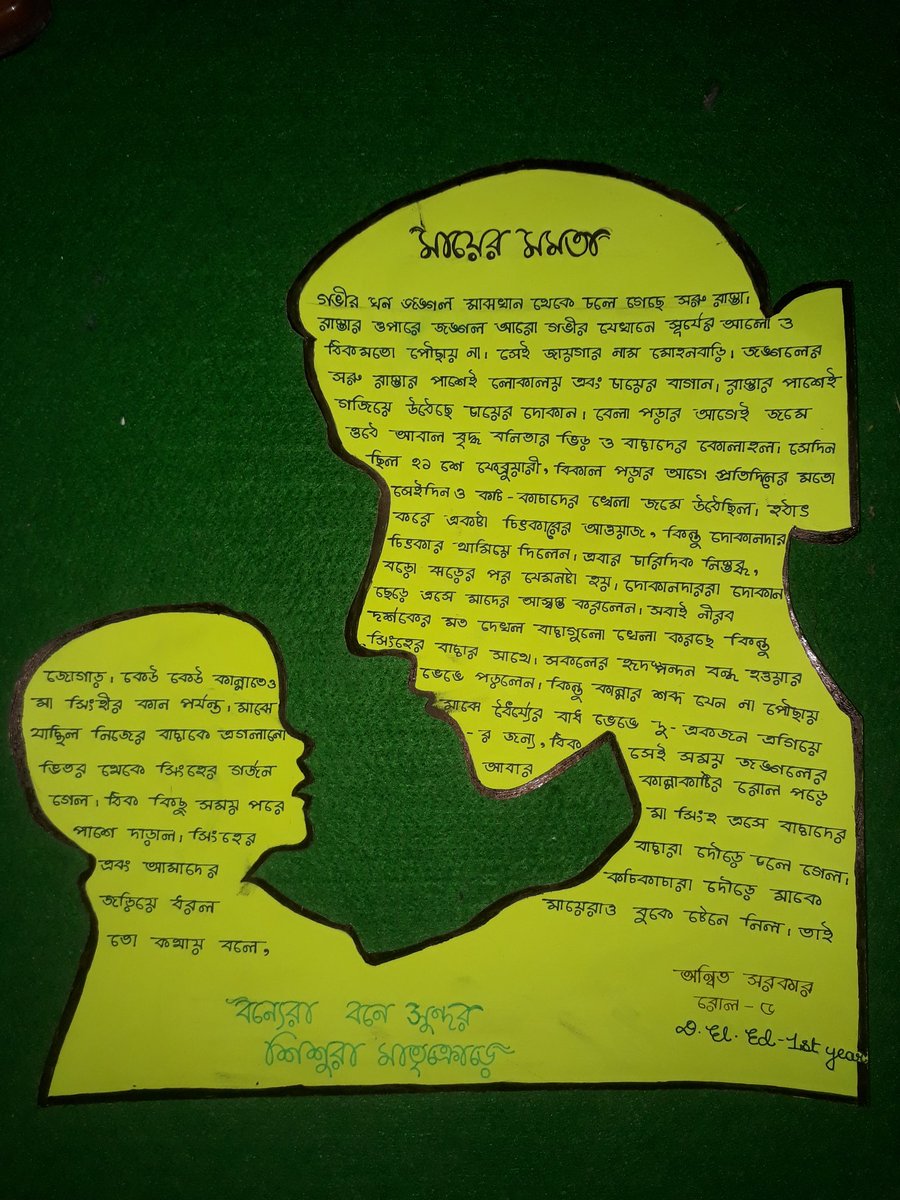 মায়ের মমতা
গভীর ঘন জঙ্গল মাঝখান থেকে চলে গেছে সরু রাস্তা।
রাস্তার ওপারে জঙ্গল আরো গভীর যেখানে সূর্যের আলো ও
ঠিকমতো পৌছায় না। সেই জায়গার নাম মোহনবাড়ি। জঙ্গলের
সরু রাস্তার পাশেই লোকালয় এবং চায়ের বাগান। রাস্তার পাশেই
গজিয়ে উঠেছে চায়ের দোকান। বেলা পড়ার আগেই জমে
ওঠে আবাল বৃদ্ধ বনিতার ভিড় ও বাচ্চাদের কোলাহল। সেদিন
ছিল ২১ শে ফেব্রুয়ারী, বিকাল পড়ার আগে প্রতিদিনের মতো
সেইদিন ও কচি-কাচাদের খেলা জমে উঠেছিল। হঠাৎ
করে একটা চিৎকারের আওয়াজ, কিন্তু দোকানদার
চিৎকার থামিয়ে দিলেন। এবার চারিদিক নিস্তব্ধ,
বড়ো ঝড়ের পর যেমনটা হয়। দোকানদাররা দোকান
ছেড়ে এসে মাদের আস্বস্ত করলেন। সবাই নীরব
দর্শকের মত দেখল বাচ্চাগুলো খেলা করছে কিন্তু
সিংহের বাচ্চার সাথে। সকলের হৃদস্পন্দন বন্ধ হওয়ার
জোগাড়। কেউ কেউ কান্নাতেও ভেঙে পড়লেন। কিন্তু কান্নার শব্দ যেন না পৌছায়
মা সিংহীর কান পর্যন্ত। মাঝে মাঝে ধৈর্য্যের বাধ ভেঙে দু-একজন এগিয়ে
যাচ্ছিল নিজের বাচ্চাকে এগলানো -র জন্য, ঠিক সেই সময় জঙ্গলের
ভিতর থেকে সিংহের গর্জন আবার কান্নাকাটির রোল পড়ে
গেল। ঠিক কিছু সময় পরে মা সিংহ এসে বাচ্চাদের
পাশে দাড়াল। সিংহের বাচ্চারা দৌড়ে চলে গেল।
এবং আমাদের কচিকাচারা দৌড়ে মাকে
জড়িয়ে ধরল মায়েরাও বুকে টেনে নিল। তাই
তো কথায় বলে,
বন্যেরা বনে সুন্দর
শিশুরা মাতৃক্রোড়ে
অন্বিত সরকার
রোল - ৫
D. El. Ed - 1st year